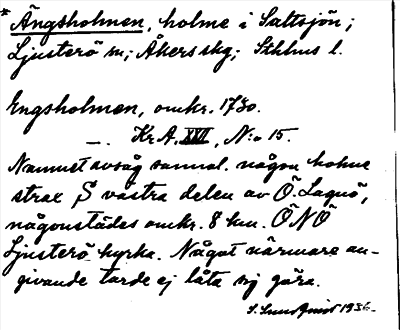 * Ängsholmen, holme i Saltsjön;
Ljusterö sn; Åkers skg; Sthlms l.
Engsholmen, omkr. 1730.
—. Kr A. XVI, N:o 15.
Namnet avsåg sannol. någon holme
strax S västra delen av Ö. Lagnö,
någonstädes omkr. 8 km. ÖNÖ
Ljusterö kyrka. Något närmare an-
givande torde ej låta sig göra.
1936.